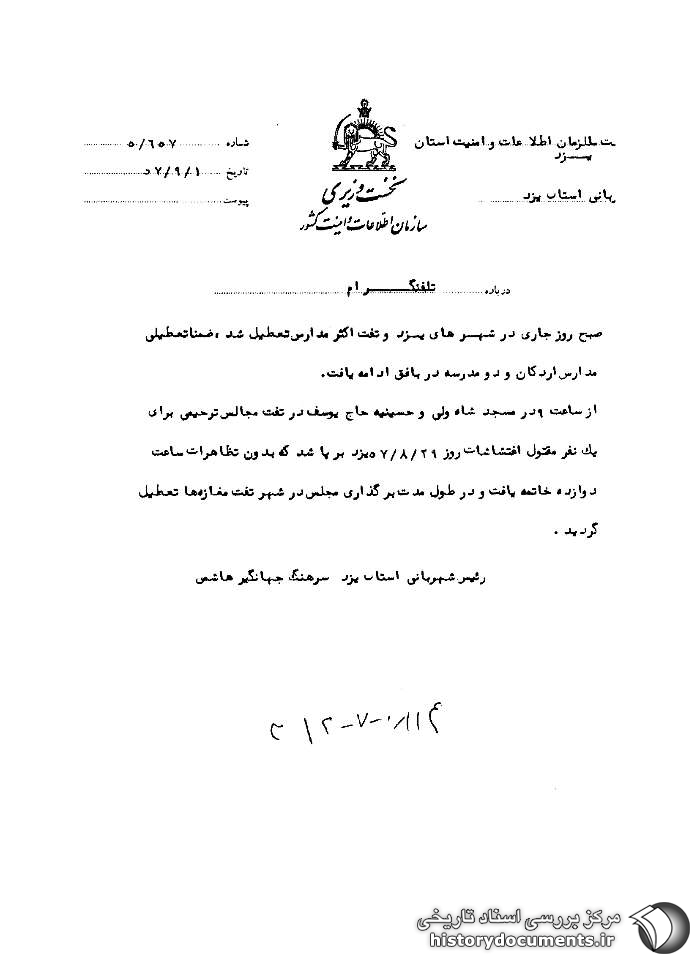 ت سازمان اطلاعات و امنیت استان
یزد
ربانی استان یزد
نخست وزیری
سازمان اطلاعات و امنیت کشور
شماره ۵/۶۵۰۷
تاریخ ۵۷/۹/۱
پیوست
درباره تلفنگرام
صبح روز جاری در شهر های یزد و تفت اکثر مدارس تعطیل شد ، ضمنا تعطیلی
مدارس اردکان و دو مدرسه در بافق ادامه یافت.
از ساعت ۹ در مسجد شاه ولی و حسینیه حاج یوسف در تفت مجالس ترحیمی برای
یك نفر مقتول اغتشاشات روز ۵۷/۸/۲۹ یزد بر پا شد که بدون تظاهرات ساعت
دوازده خاتمه یافت و در طول مدت بر گذاری مجلس در شهر تفت مغازه‌ها تعطیل
گردید .
رئیس شهربانی استان یزد سرهنگ جهانگیر هاشمی
مرکز بررسی اسناد تاریخی
historydocuments.ir